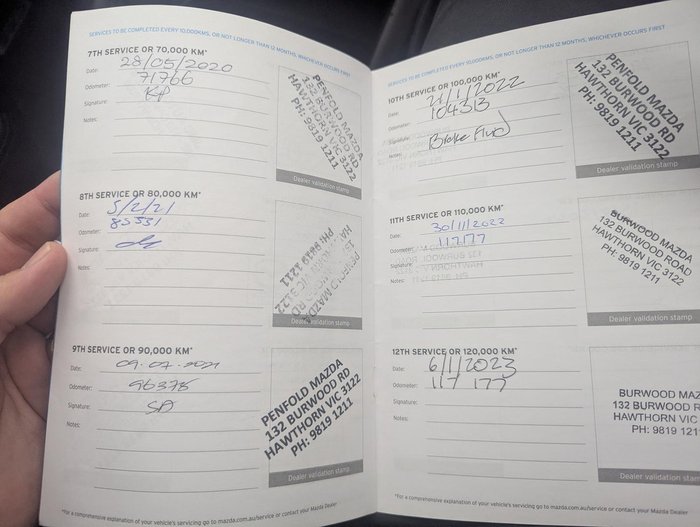 SERVICES TO BE COMPLETED EVERY 10,000KMS, OR NOT LONGER THAN 12 MONTHS, WHICHEVER OCCURS FIRST
7TH SERVICE OR 70,000 KM*
Date: 28/05/2020
Odometer: 71766
Signature:
Notes:
PENFOLD MAZDA
132 BURWOOD RD
HAWTHORN VIC 3122
PH: 9819 1211
Dealer validation stamp
8TH SERVICE OR 80,000 KM*
Date: 5/2/21
Odometer: 85531
Signature:
Notes:
PENFOLD MAZDA
HAWTHORN VIC 3122
PH: 9819 1211
Dealer validation stamp
9TH SERVICE OR 90,000 KM*
Date: 09.07.2021
Odometer: 96375
Signature:
Notes:
PENFOLD MAZDA
132 BURWOOD RD
HAWTHORN VIC 3122
PH: 9819 1211
Dealer validation stamp
*For a comprehensive explanation of your vehicle's servicing go to mazda.com.au/service or contact your Mazda Dealer
SERVICES TO BE COMPLETED EVERY 10,000KMS, OR NOT LONGER THAN 12 MONTHS, WHICHEVER OCCURS FIRST
10TH SERVICE OR 100,000 KM*
Date: 21/1/2022
Odometer:
Signature:
Notes: Brake Fluid
PENFOLD MAZDA
132 BURWOOD RD
HAWTHORN VIC 3122
PH: 9819 1211
Dealer validation stamp
11TH SERVICE OR 110,000 KM*
Date: 30/11/2022
Odometer: 117177
Signature:
Notes:
BURWOOD MAZDA
132 BURWOOD ROAD
HAWTHORN VIC 3122
PH: 9819 1211
Dealer validation stamp
12TH SERVICE OR 120,000 KM*
Date: 6/1/2023
Odometer: 117 177
Signature:
Notes:
BURWOOD MAZ
132 BURWOOD R
HAWTHORN VIC
PH: 9819 121
Dealer validation stam
*For a comprehensive explanation of your vehicle's servicing go to mazda.com.au/service or contact your Mazda Dealer